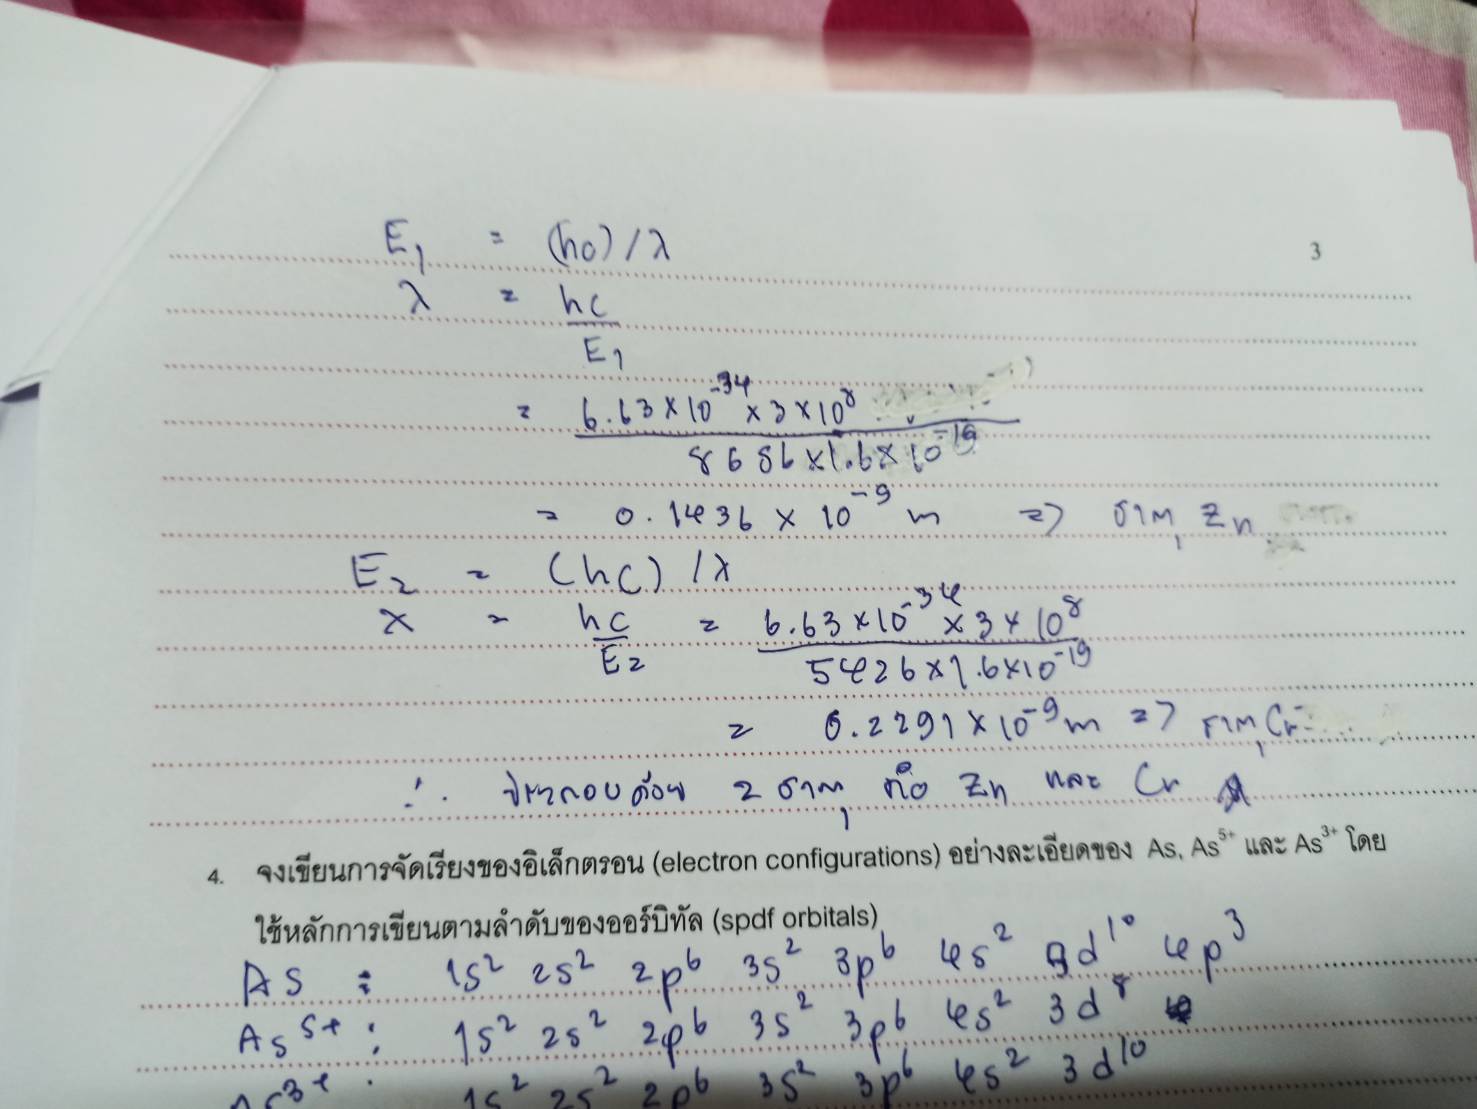 3
E₁ = (hc)/λ
λ = hc
E₁
= 6.63×10⁻³⁴×3×10⁸
8656×1.6×10⁻¹⁹
= 0.1436 × 10⁻⁹ m => ธาตุ Zn
E₂ = (hc)/λ
λ = hc = 6.63×10⁻³⁴×3×10⁸
E₂ 5426×1.6×10⁻¹⁹
= 0.2291×10⁻⁹m => ธาตุ Cr
∴ ประกอบด้วย 2 ธาตุ คือ Zn และ Cr
4. จงเขียนการจัดเรียงของอิเล็กตรอน (electron configurations) อย่างละเอียดของ As, As⁵⁺ และ As³⁺ โดย
ใช้หลักการเขียนตามลำดับของออร์บิทัล (spdf orbitals)
As : 1s² 2s² 2p⁶ 3s² 3p⁶ 4s² 3d¹⁰ 4p³
As⁵⁺ : 1s² 2s² 2p⁶ 3s² 3p⁶ 4s² 3d⁸
As³⁺ : 1s² 2s² 2p⁶ 3s² 3p⁶ 4s² 3d¹⁰